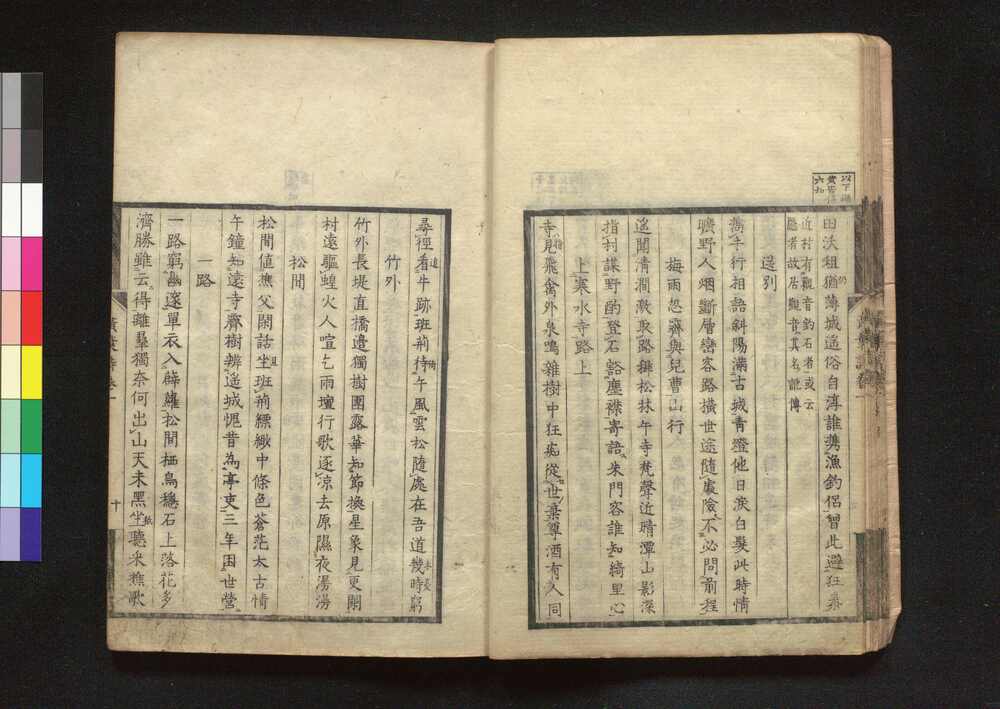 田沃租猶薄城遙俗自淳誰携漁釣侶曾此避狂秦
近村有觀音釣石者或云
愚者故居觀音其名訛傳
送別
携手行相語斜陽滿古城青燈他日淚白髮此時情
曠野人烟斷層巒客路橫世途隨處險不必問前程
梅雨忽霽與兒曹山行
遙聞清澗激取路松林午寺梵聲近晴潭山影深
指村謀野酌登石豁塵襟寄語朱門客誰知綺里心
上寒水寺路上
寺見飛禽外泉鳴雜樹中狂痴從世棄尊酒有人同
尋徑看牛跡班荊待午風雲松隨處在吾道幾時窮
竹外
竹外長堤直橋邊獨樹團露華知節換星象見更闌
村遠驅蝗火人喧乞雨壇行歌逐凉去原隰夜湯湯
松間
松間値樵父閑話坐班荊縹緲中條色蒼茫太古情
午鐘知遠寺霽樹辨遙城慨昔為亭吏三年困世營
一路
一路窮幽邃單衣入薜蘿松間栖鳥穩石上落花多
濟勝雖云得離羣獨奈何出山天未黑坐聽采樵歌
十